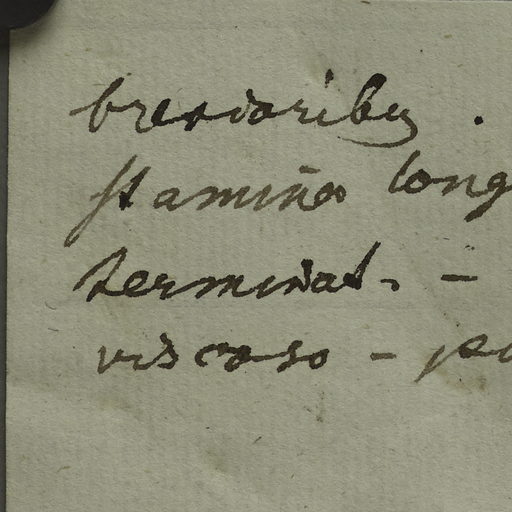 brevioribus .
stamina long
terminat. -
viscoso - po